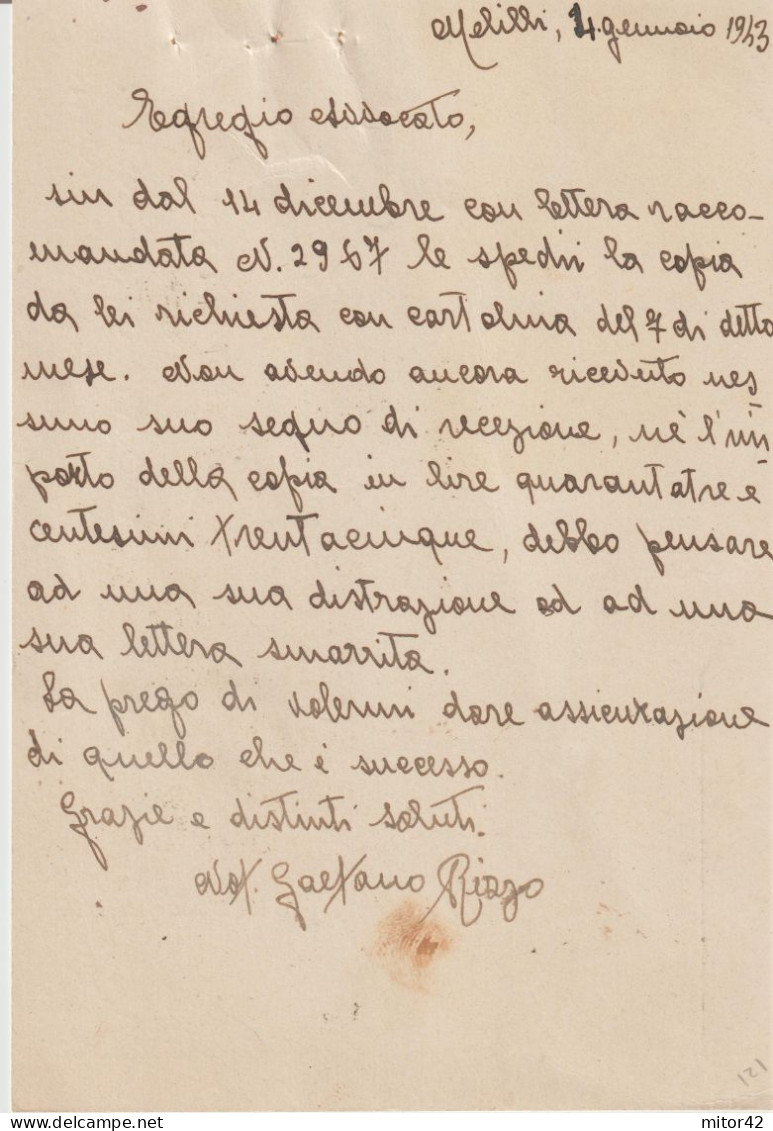 Melilli, 4 gennaio 1943
Egregio Avvocato,
sin dal 14 dicembre con lettera racco-
mandata N. 2967 le spedii la copia
da lei richiesta con cartolina del 7 di detto
mese. Non avendo ancora ricevuto nes
suno suo segno di recezione, nè l'im
porto della copia in lire quarantatre e
centesimi trentacinque, debbo pensare
ad una sua distrazione od ad una
sua lettera smarrita.
La prego di volermi dare assicurazione
di quello che è successo.
Grazie e distinti saluti.
Not. Gaetano Rizzo
121
delcampe.net
mitor42